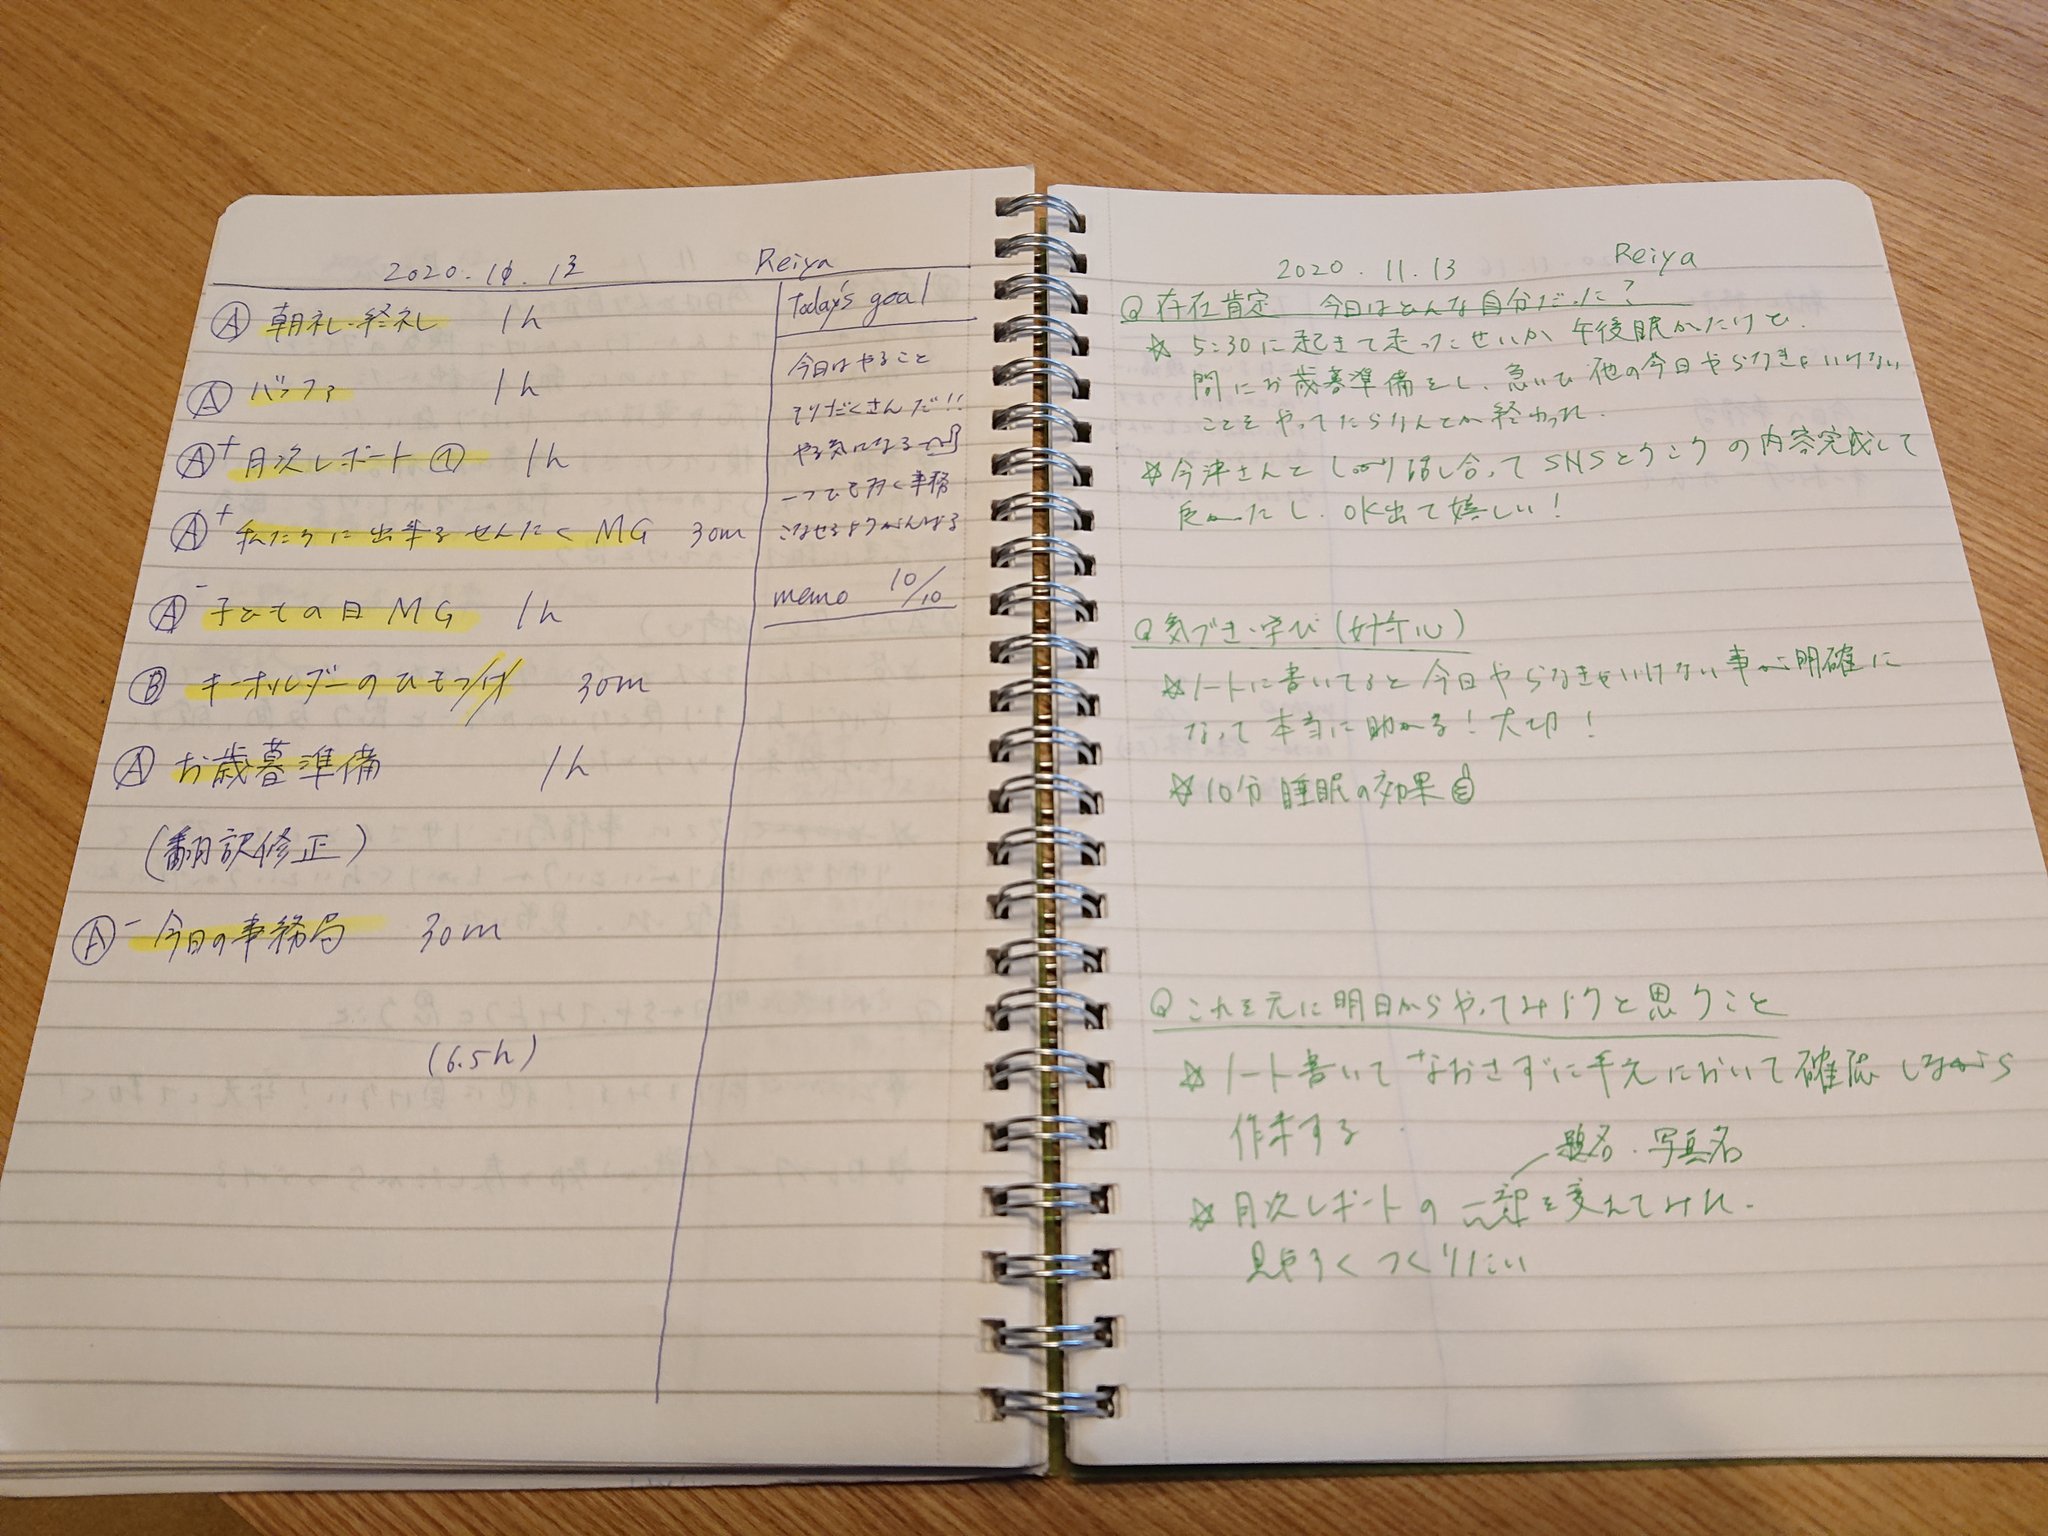 2020.11.13 Reiya
Ⓐ 朝礼・終礼 1h
Ⓐ バッファ 1h
Ⓐ+ 月次レポート① 1h
Ⓐ+ 私たちに出来るせんたく MG 30m
Ⓐ- 子どもの日 MG 1h
Ⓑ キーホルダーのひもつけ 30m
Ⓐ お歳暮準備 1h
(翻訳修正)
Ⓐ- 今日の事務局 30m
(6.5h)
Today's goal
今日はやること
もりだくさんだ!!
やる気になる
一つでも多く事務
こなせるようがんばる
memo 10/10
2020.11.13 Reiya
Q 存在肯定 今日はどんな自分だった?
☆ 5:30に起きて走ったせいか 午後眠かたけど、
間にお歳暮準備をし、急いで他の今日やらなきゃいけない
ことをやってたらなんとか終わった.
☆ 今津さんとしっかり話し合ってSNSとうこうの内容完成して
良かたし、OK出て嬉しい!
Q 気づき・学び(好奇心)
☆ ノートに書いてると今日やらなきゃいけない事が明確に
なって本当に助かる!大切!
☆ 10分睡眠の効果
Q これを元に明日からやってみようと思うこと
☆ ノート書いてなおさずに手元において確認しながら
作業する
題名・写真名
☆ 月次レポートの一部を変えてみた.
見やすくつくりたい